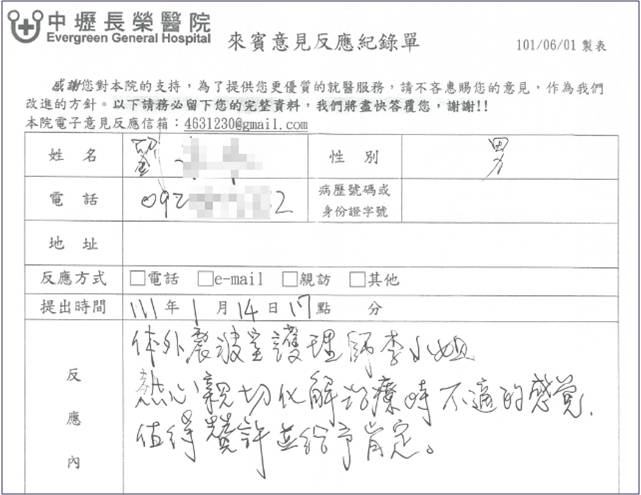 中壢長榮醫院
Evergreen General Hospital
來賓意見反應紀錄單
101/06/01 製表
感謝您對本院的支持，為了提供您更優質的就醫服務，請不吝惠賜您的意見，作為我們
改進的方針。以下請務必留下您的完整資料，我們將盡快答覆您，謝謝!!
本院電子意見反應信箱：4631230@gmail.com
姓名
性別 男
電話 092 2
病歷號碼或
身份證字號
地址
反應方式 □電話 □e-mail □親訪 □其他
提出時間 111年1月14日17點 分
反應內
体外震波室護理師李小姐
熱心親切化解治療時不適的感覺.
值得贊許並給予肯定。